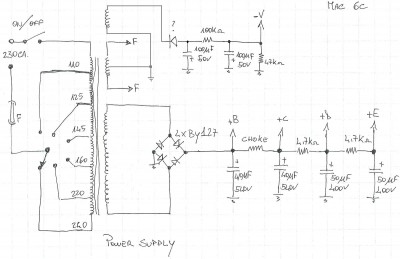 MAC 6C
ON/OFF
230CA.
F
110
125
145
160
220
260
F
F
?
100KΩ
-V
100µF
50V
100µF
50V
47KΩ
4xBy127
+B
CHOKE
+C
4.7KΩ
+D
4.7KΩ
+E
40µF
510V
40µF
510V
50µF
400V
50µF
400V
POWER SUPPLY